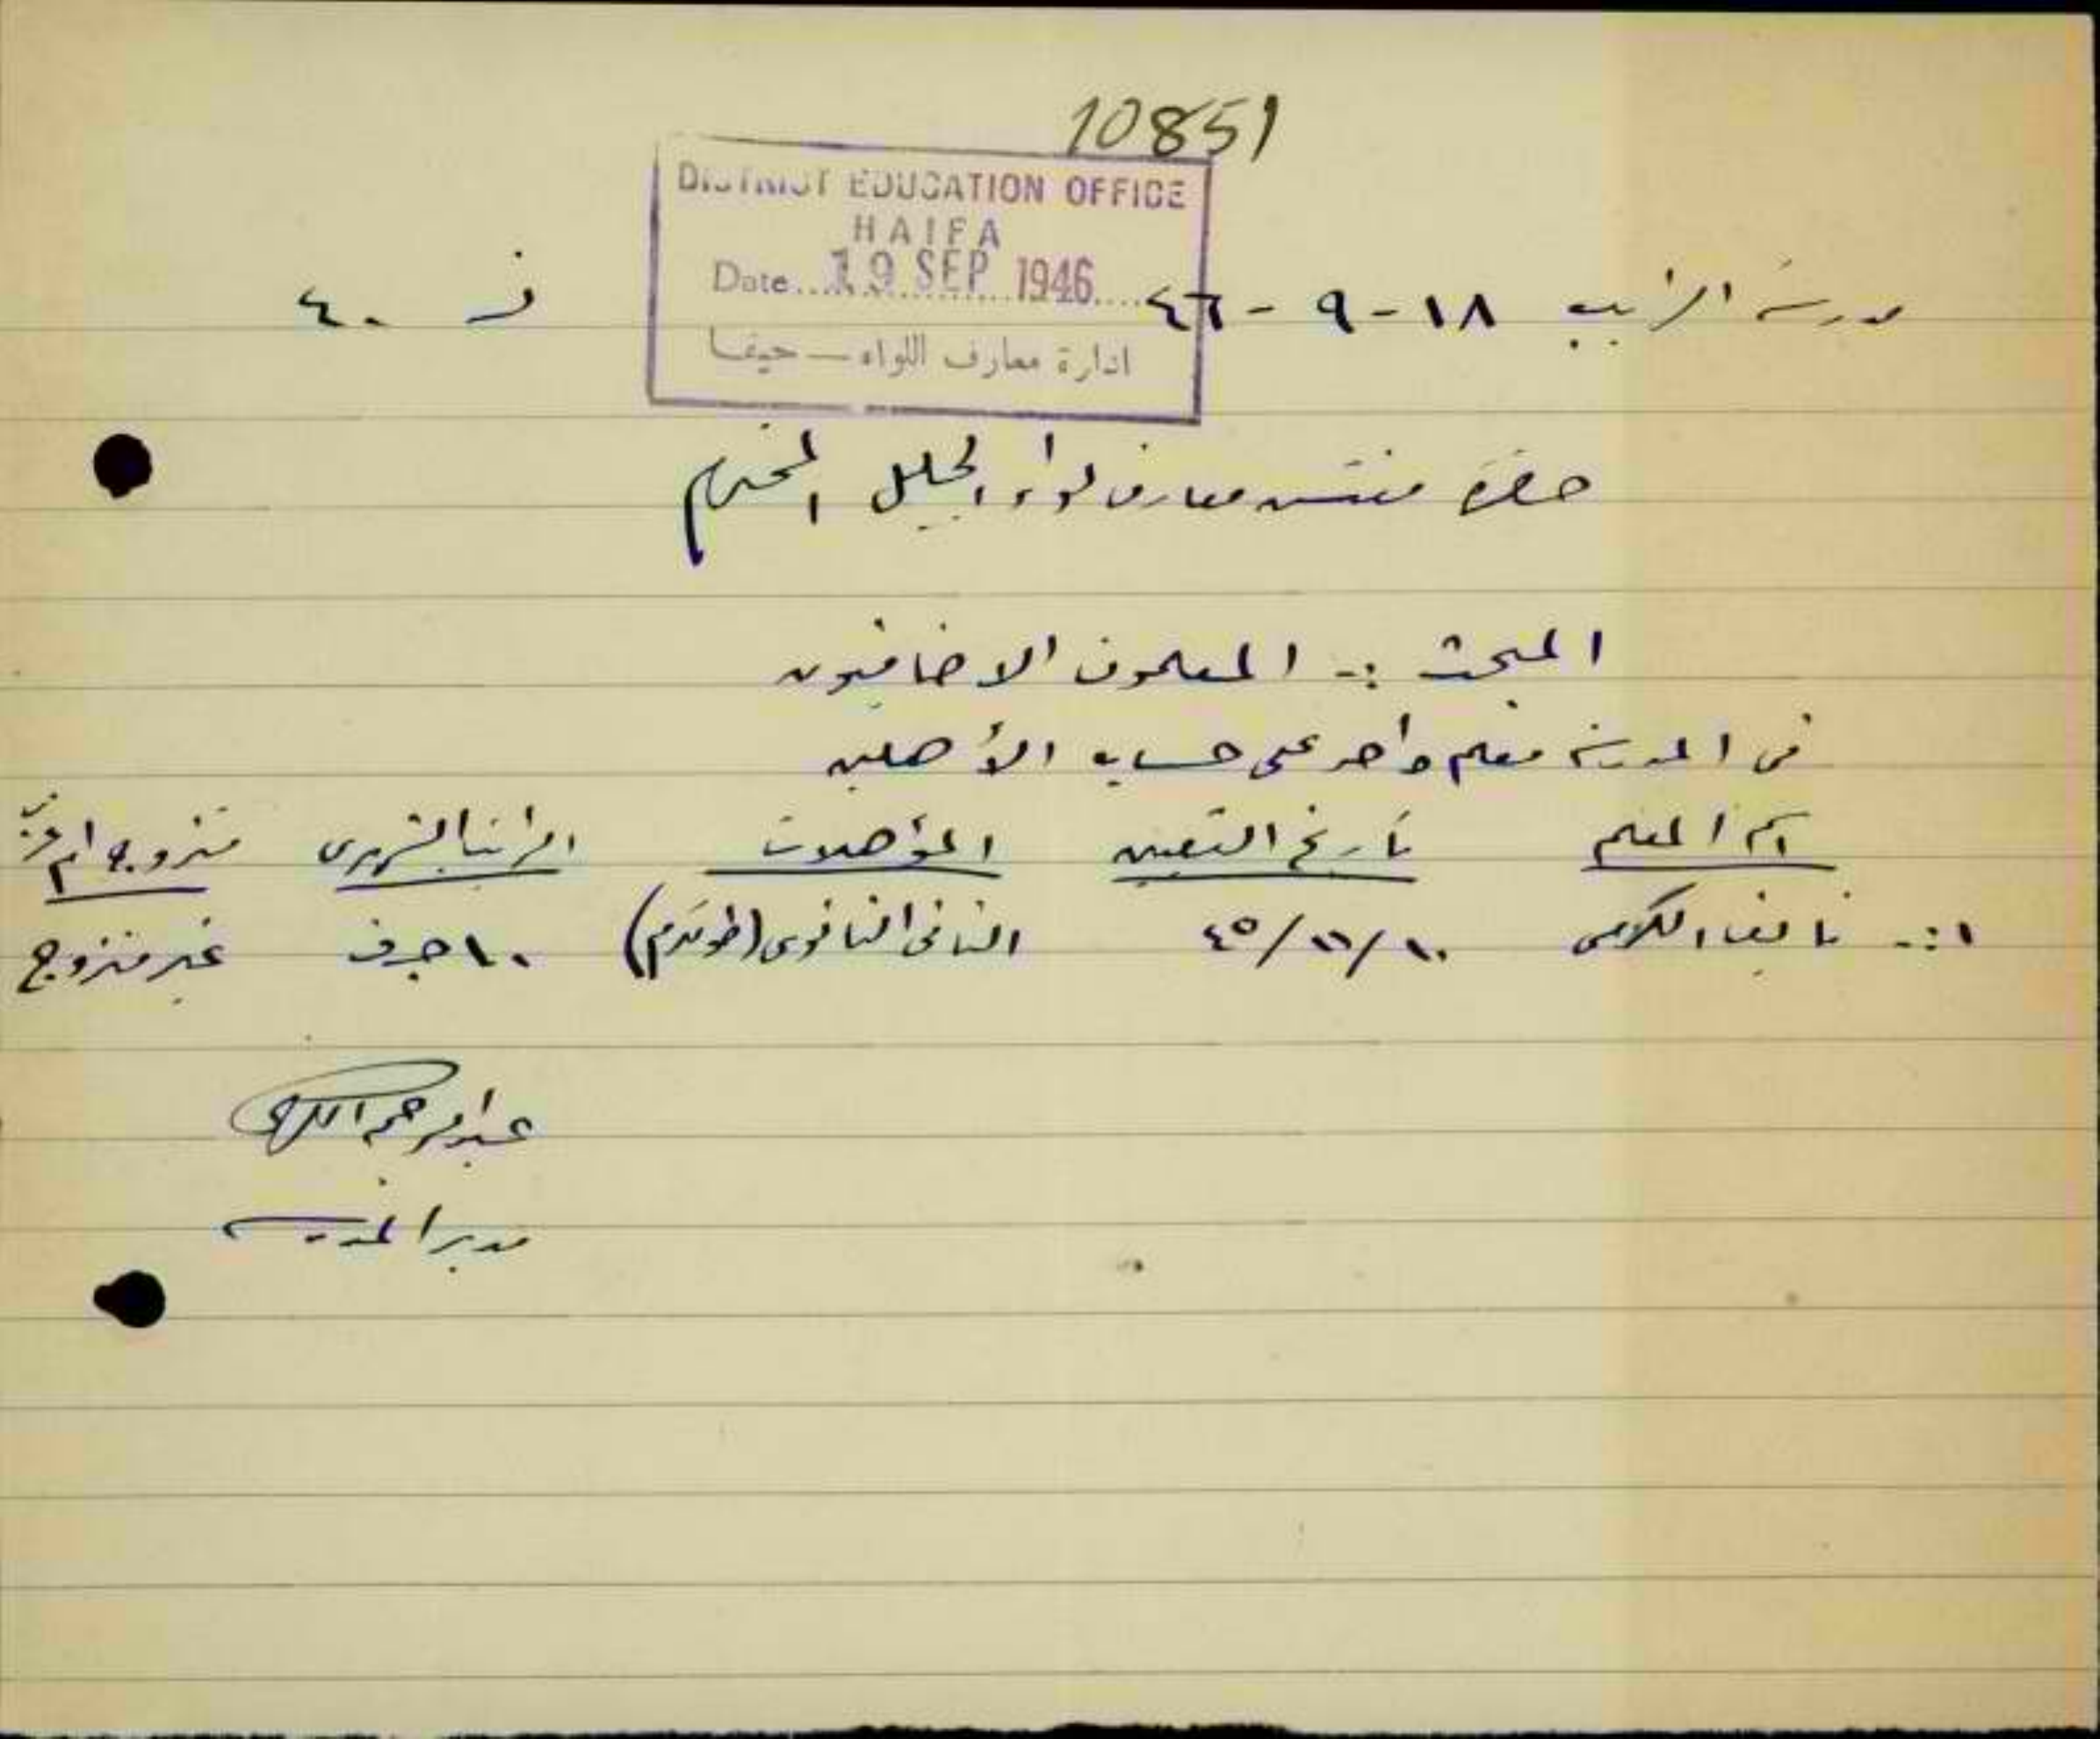 10851
DISTRICT EDUCATION OFFICE
HAIFA
Date 19 SEP 1946
ادارة معارف اللواء – حيفا
مدرسة الزيب ١٨-٩-٤٦ ف ٤٠
حضرة مفتش معارف لواء الجليل المحترم
المبحث :- المعلمون الاضافيون
في المدرسة معلم واحد على حساب الأهلين
اسم المعلم تاريخ التعيين المؤهلات الراتب الشهري متزوج ام عزب
١:- نايف الكرمي ٤٥/١١/١٠ الثاني الثانوي (طولكرم) ١٠ ج.ف غير متزوج
عبدالرحمن الكرمي
مدير المدرسة